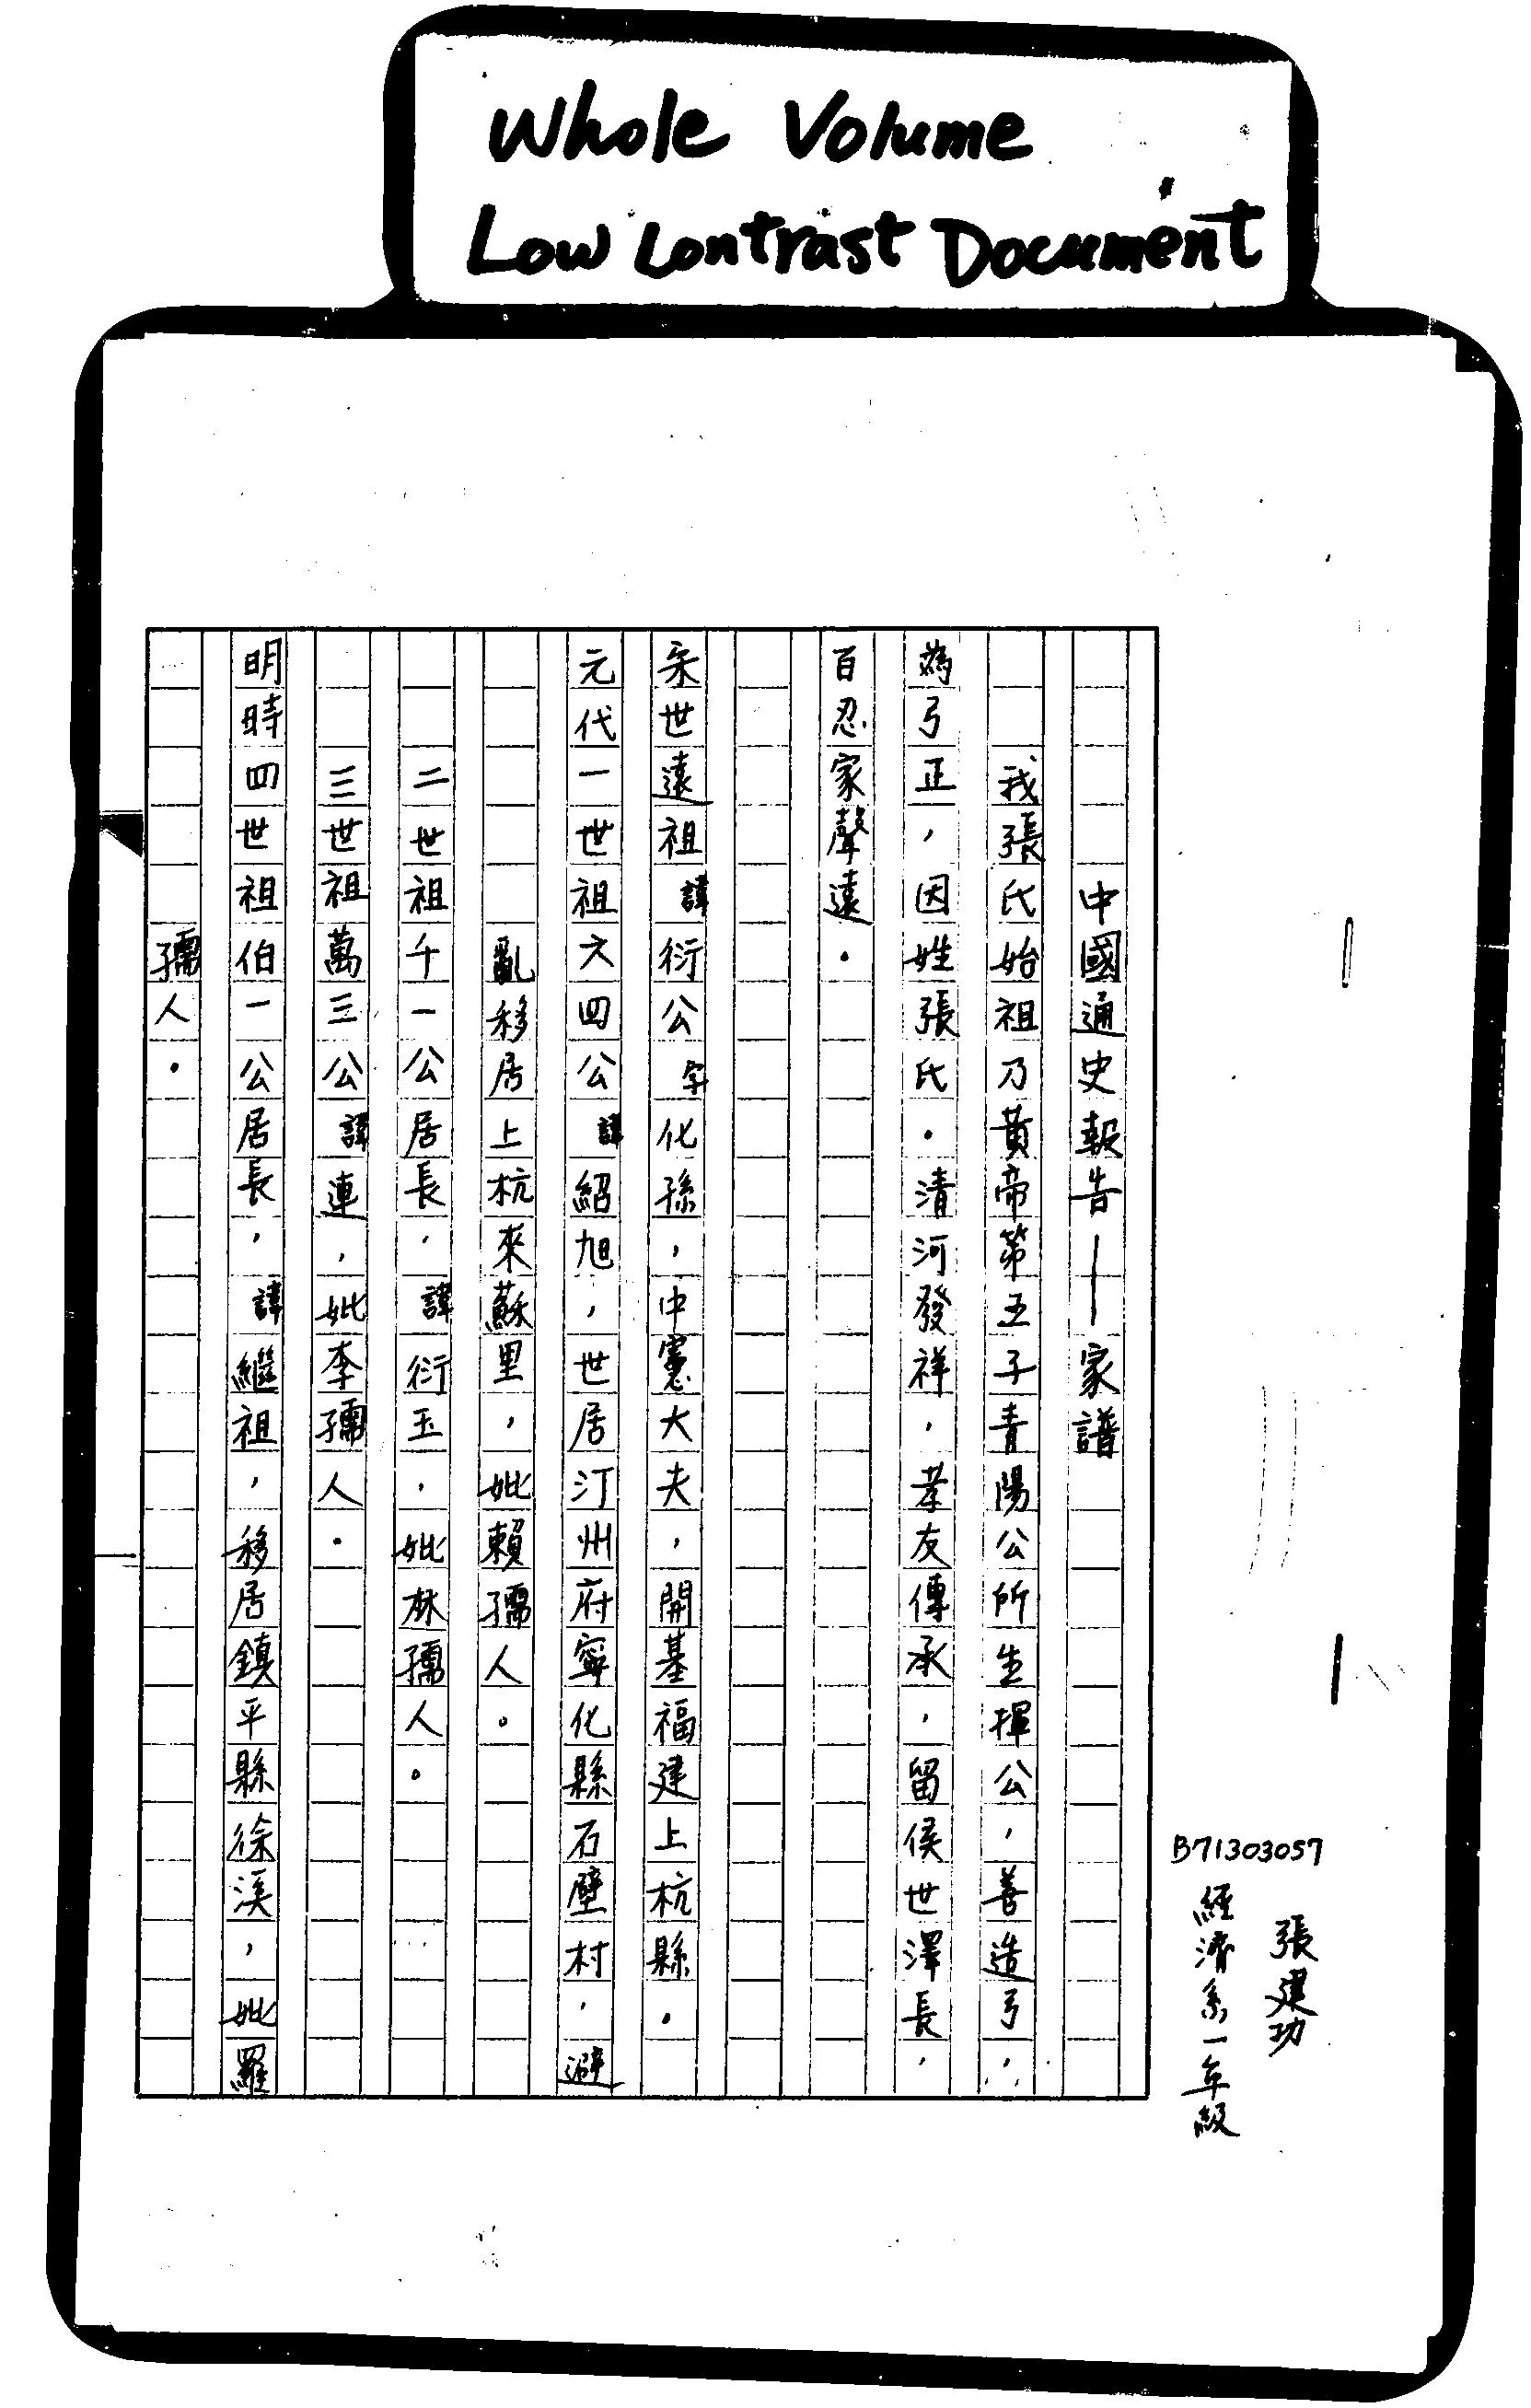 Whole Volume
Low Lontrast Document
B71303057
張建功
經濟系一年級
中國通史報告——家譜
我張氏始祖乃黃帝第五子青陽公所生揮公，善造弓，
為弓正，因姓張氏。清河發祥，孝友傳承，留侯世澤長，
百忍家聲遠。
宋世遠祖諱衍公字化孫，中憲大夫，開基福建上杭縣。
元代一世祖六四公諱紹旭，世居汀州府寧化縣石壁村，避
亂移居上杭來蘇里，妣賴孺人。
二世祖千一公居長，諱衍玉，妣林孺人。
三世祖萬三公諱連，妣李孺人。
明時四世祖伯一公居長，諱繼祖，移居鎮平縣徐溪，妣羅
孺人。